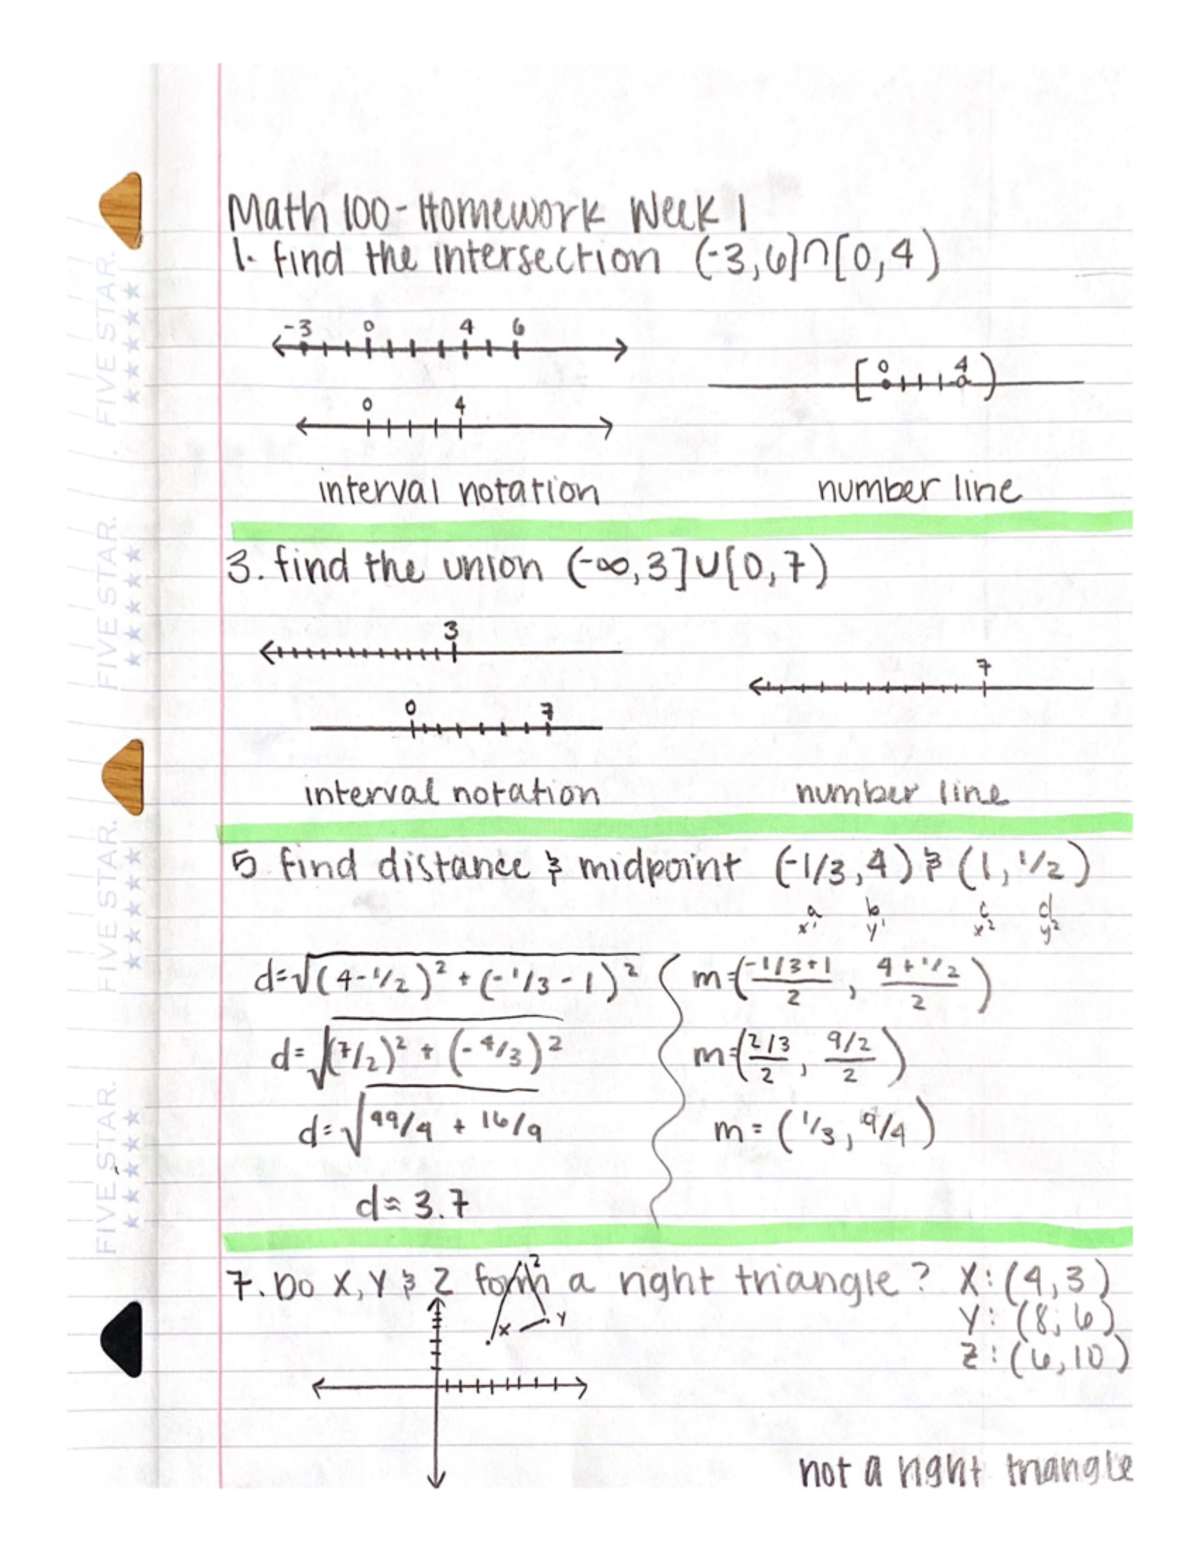 Math 100 - Homework Week 1
1. find the intersection (-3,6]∩[0,4)
-3 0 4 6
[0 4)
0 4
interval notation number line
3. find the union (-∞,3]∪[0,7)
3
7
0 7
interval notation number line
5 find distance & midpoint (-1/3,4) & (1, 1/2)
a b c d
x¹ y¹ x² y²
d=√(4-1/2)² + (-1/3-1)² m=(-1/3+1/2, 4+1/2/2)
d=√(7/2)² + (-4/3)² m=(2/3/2, 9/2/2)
d=√49/4 + 16/9 m=(1/3, 9/4)
d≈3.7
7. Do X, Y & Z form a right triangle? X:(4,3)
Y:(8,6)
Z:(6,10)
Z
X Y
not a right triangle
FIVE STAR.
FIVE STAR.
FIVE STAR.
FIVE STAR.